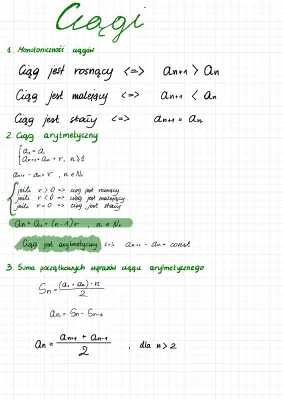 Ciągi
1. Monotoniczność ciągów
Ciąg jest rosnący <=> an+1 > an
Ciąg jest malejący <=> an+1 < an
Ciąg jest stały <=> an+1 = an
2. Ciąg arytmetyczny
a1 = a
an+1 = an + r, n≥1
an+1 - an = r, n ∈ N+
jeśli r > 0 => ciąg jest rosnący
jeśli r < 0 => ciąg jest malejący
jeśli r = 0 => ciąg jest stały
an = a1 + (n-1)r, n ∈ N+
Ciąg jest arytmetyczny <=> an+1 - an = const
3. Suma początkowych wyrazów ciągu arytmetycznego
Sn = (a1 + an) · n / 2
an = Sn - Sn-1
an = an+1 + an-1 / 2, dla n > 2